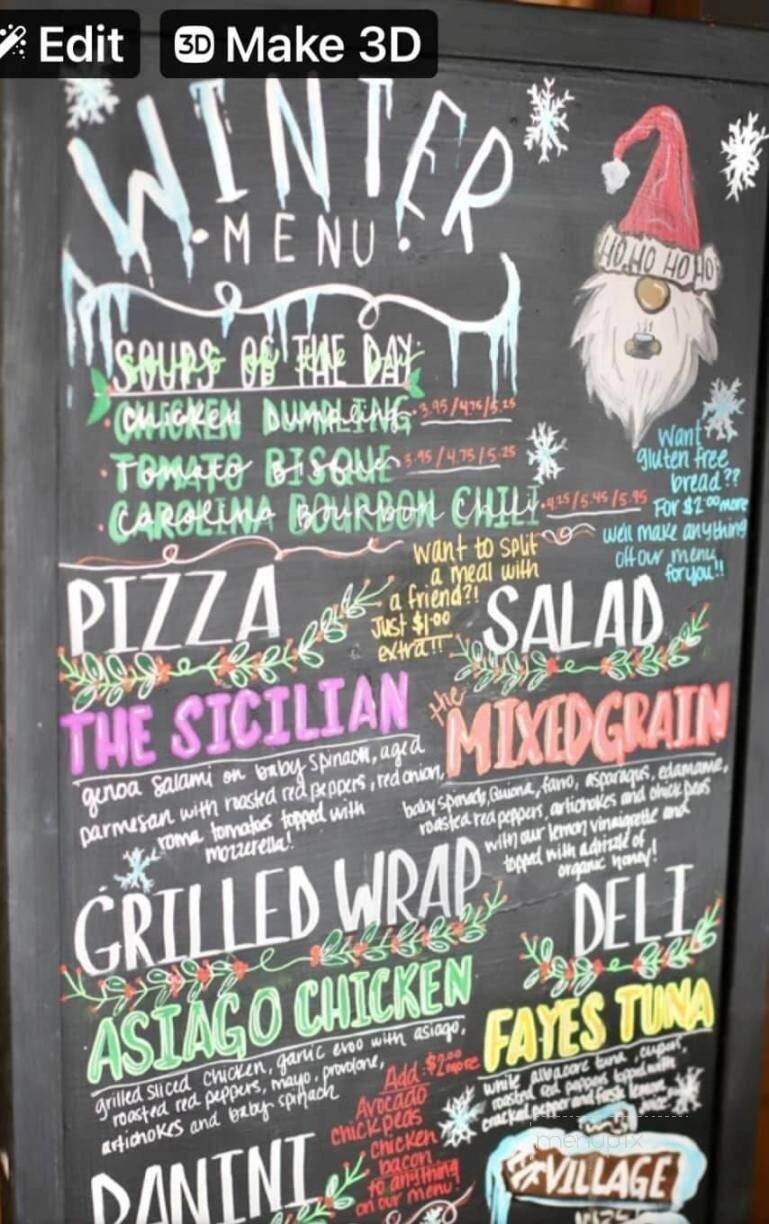 Edit
3D Make 3D
WINTER
• MENU •
HO HO HO HO
SOUPS OF THE DAY
• CHICKEN DUMPLING • 3.95/4.75/5.25
• TOMATO BISQUE • 3.95/4.75/5.25
• CAROLINA BOURBON CHILI • 4.25/5.45/5.95
Want
gluten free
bread??
For $2.00 more
we'll make anything
off our menu
for you!!
want to split
a meal with
a friend?!
Just $1.00
extra!!
PIZZA
THE SICILIAN
genoa salami on baby spinach, aged
parmesan with roasted red peppers, red onion,
roma tomatoes topped with
mozzerella!
SALAD
the
MIXED GRAIN
baby spinach, quiona, farro, asparagus, edamame,
roasted red peppers, artichokes and chick peas
with our lemon vinaigrette and
topped with a drizzle of
organic honey!
GRILLED WRAP
ASIAGO CHICKEN
grilled sliced chicken, garlic evoo with asiago,
roasted red peppers, mayo, provolone,
artichokes and baby spinach
DELI
FAYES TUNA
white albacore tuna,
roasted red peppers topped with
cracked pepper and fresh lemon
juice
Add $2.00 more
Avocado
chick peas
chicken
bacon
to anything
on our menu!
PANINI
menupix
VILLAGE